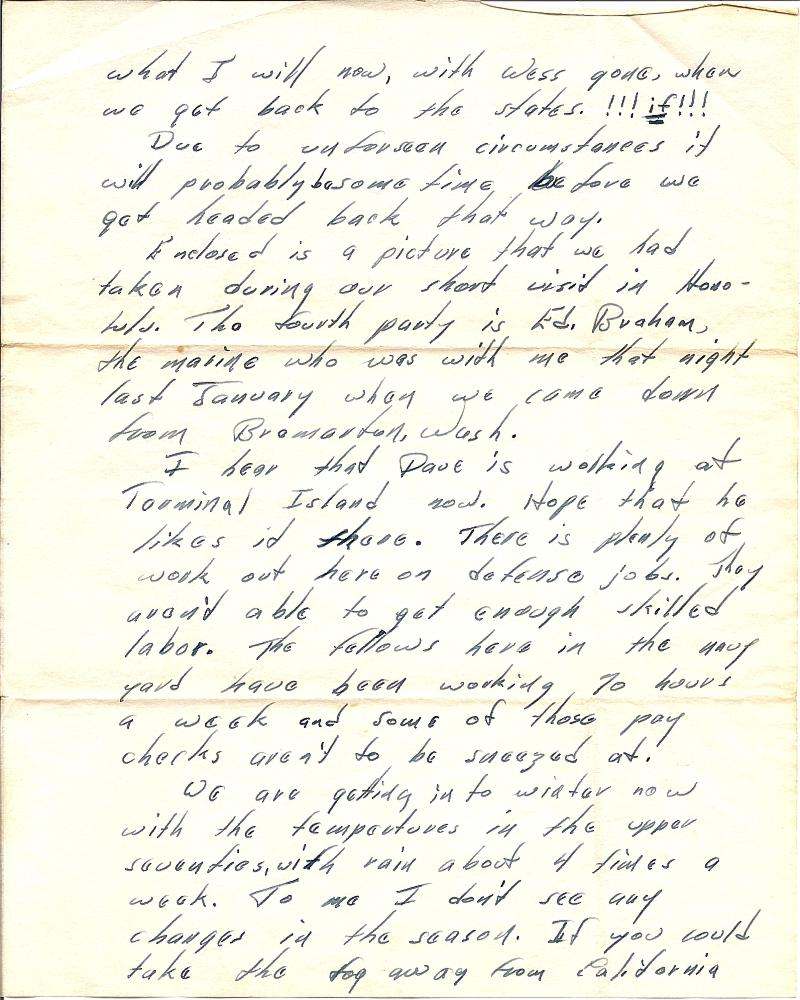 what I will now, with Wess gone, when
we get back to the states. !!!if!!!
Due to unforseen circumstances it
will probably be some time before we
get headed back that way.
Enclosed is a picture that we had
taken during our short visit in Hono-
lulu. The fourth party is Ed. Braham,
the marine who was with me that night
last January when we came down
from Bremerton, Wash.
I hear that Dave is working at
Terminal Island now. Hope that he
likes it there. There is plenty of
work out here on defense jobs. They
aren't able to get enough skilled
labor. The fellows here in the navy
yard have been working 70 hours
a week and some of those pay
checks aren't to be sneezed at.
We are getting in to winter now
with the tempertures in the upper
seventies, with rain about 4 times a
week. To me I don't see any
changes in the season. If you could
take the fog away from California